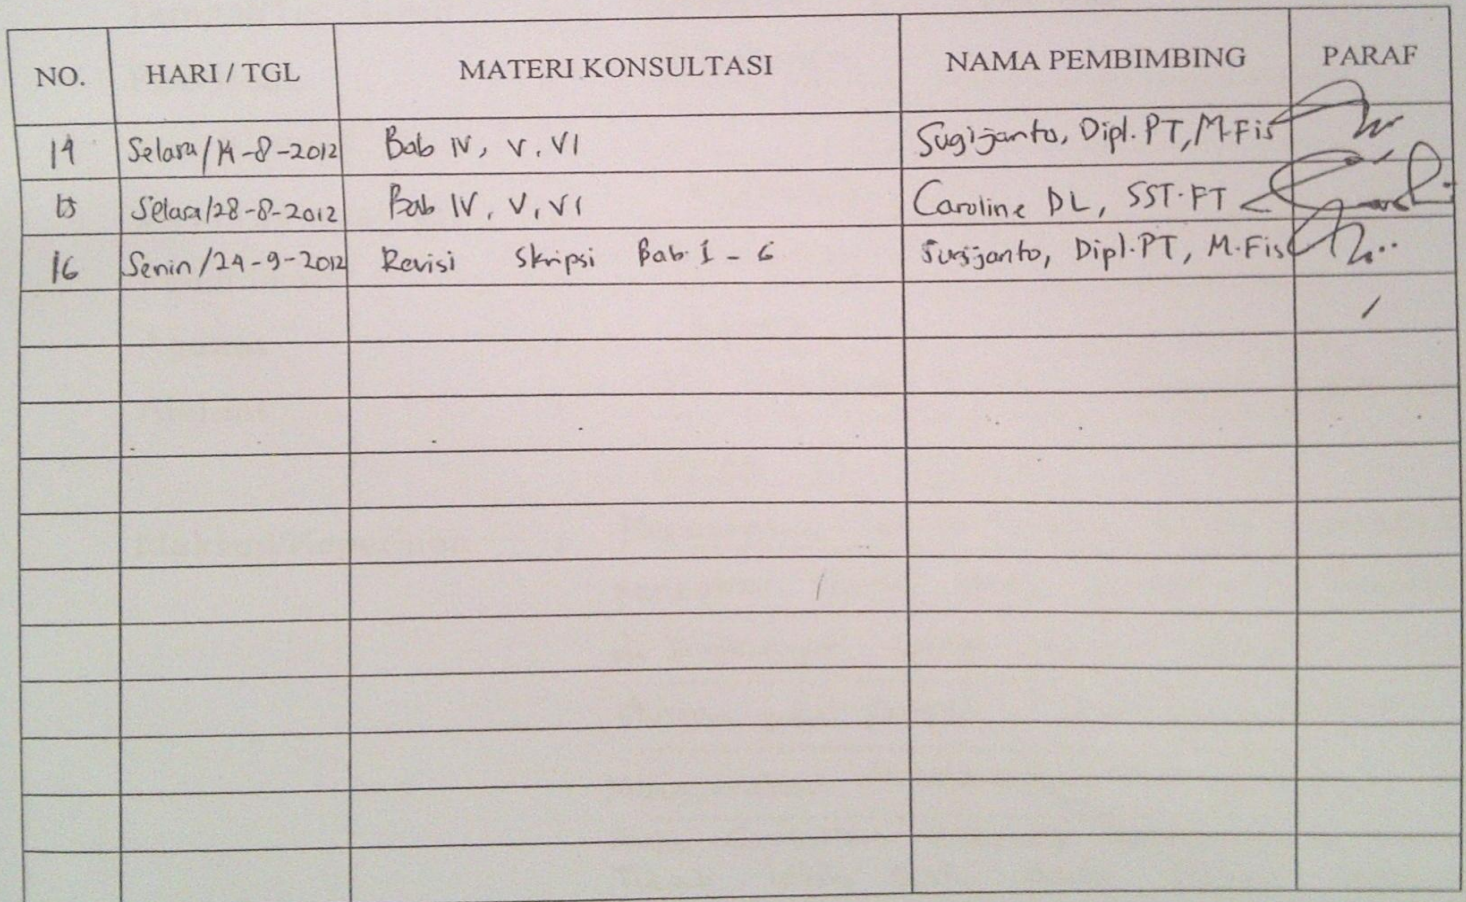 NO. HARI / TGL MATERI KONSULTASI NAMA PEMBIMBING PARAF
14 Selasa/14-8-2012 Bab IV, V, VI Sugijanto, Dipl.PT, M.Fis
15 Selasa/28-8-2012 Bab IV, V, VI Caroline DL, SST.FT
16 Senin/24-9-2012 Revisi Skripsi Bab I - 6 Sugijanto, Dipl.PT, M.Fis